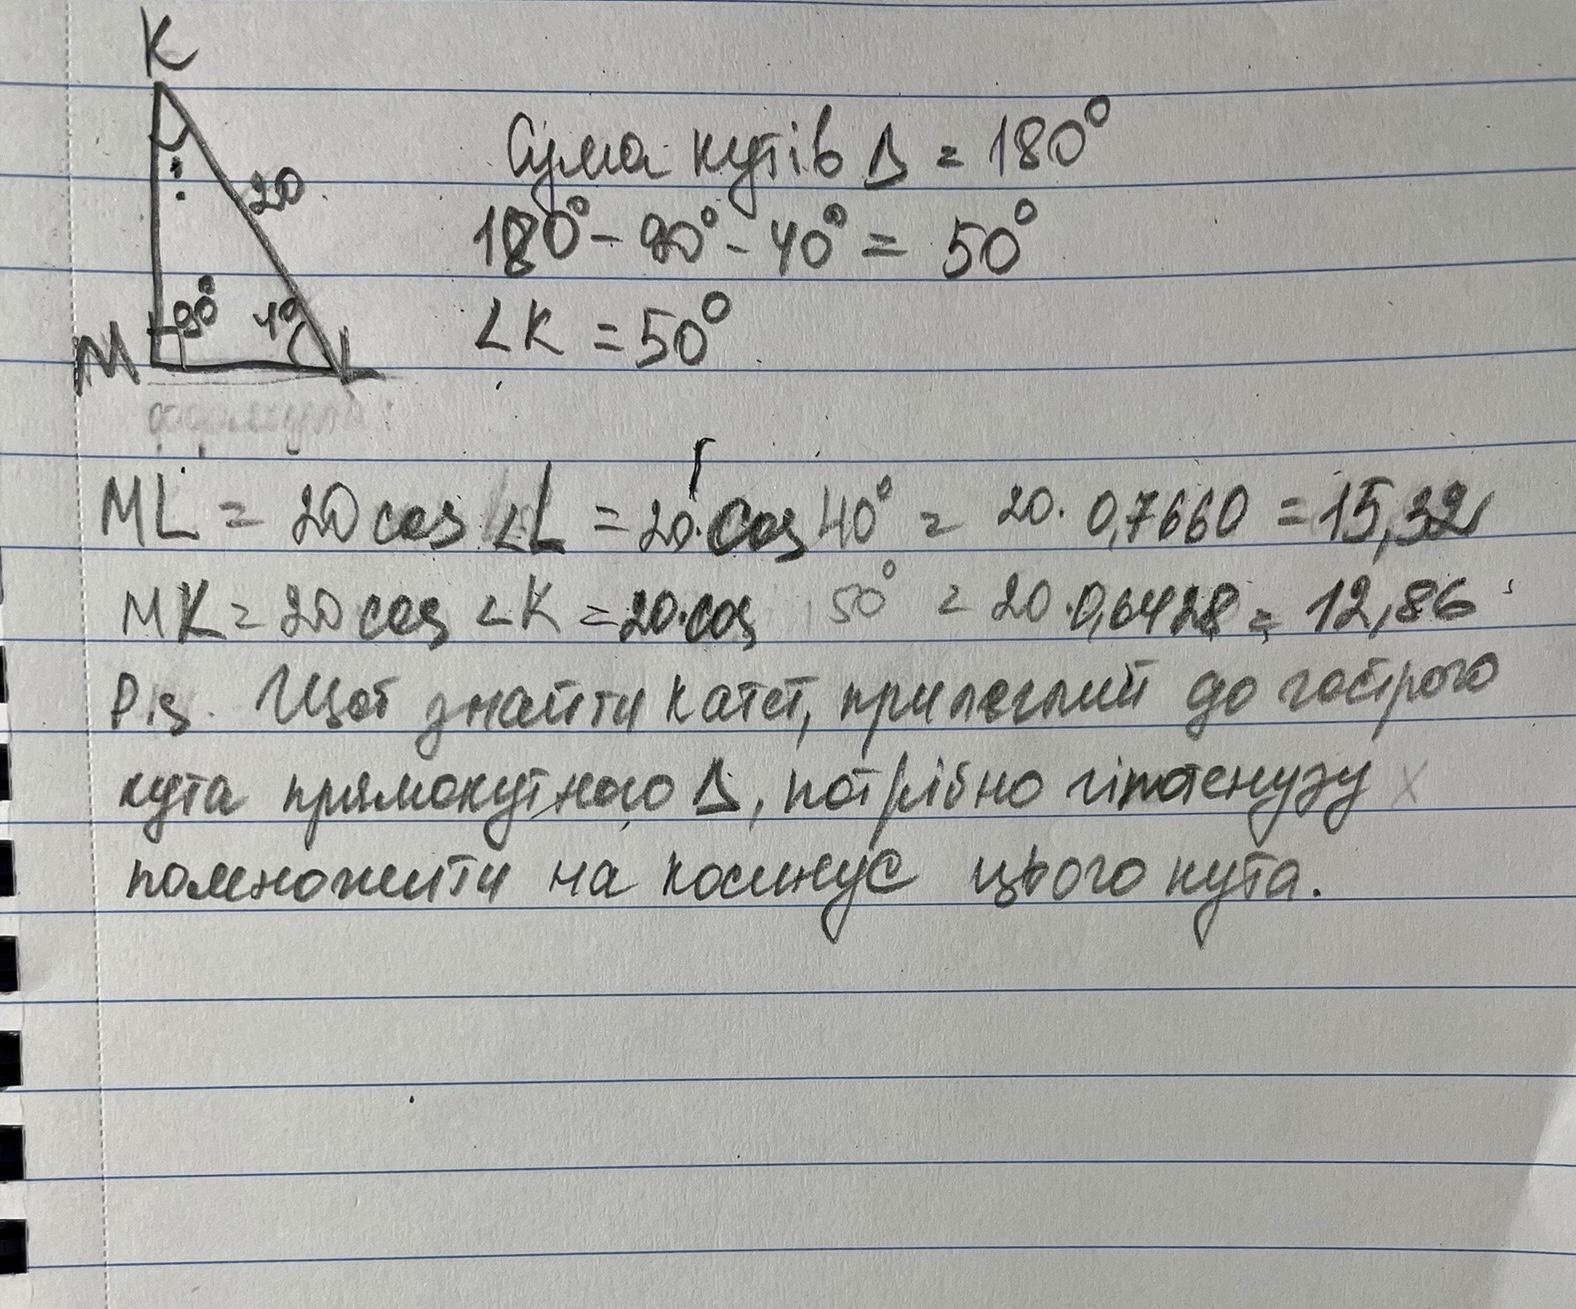 K
20
90°
40
M
L
Сума кутів Δ = 180°
180° - 90° - 40° = 50°
∠K = 50°
формула:
ML = 20 cos ∠L = 20·cos 40° = 20·0,7660 = 15,32
MK = 20 cos ∠K = 20·cos 50° = 20·0,6428 = 12,86
P.s. Щоб знайти катет, прилеглий до гострого
кута прямокутного Δ, потрібно гіпотенузу
помножити на косинус цього кута.